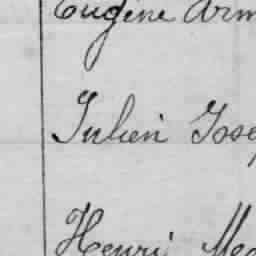 Eugène Arm
Julien Jose
Henri Me